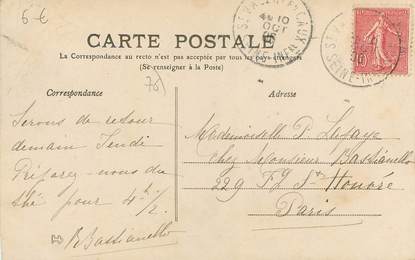 6-€
CARTE POSTALE
La Correspondance au recto n'est pas acceptée par tous les pays étrangers
(Se renseigner à la Poste)
Correspondance
Serons de retour
demain Jeudi
Préparez-nous du
thé pour 4h 1/2
R Bastianello
Adresse
Mademoiselle P. Lesage
Chez Monsieur Bastianello
229 Fg St Honoré
Paris
ST VALERY EN CAUX
10
OCT
SEINE-INFRE